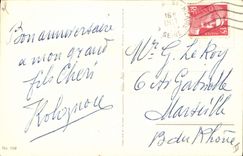 Bon anniversaire
a mon grand
fils Cheri
Mr G. Le Roy
6 Gabrielle
Marseille
B du Rhône